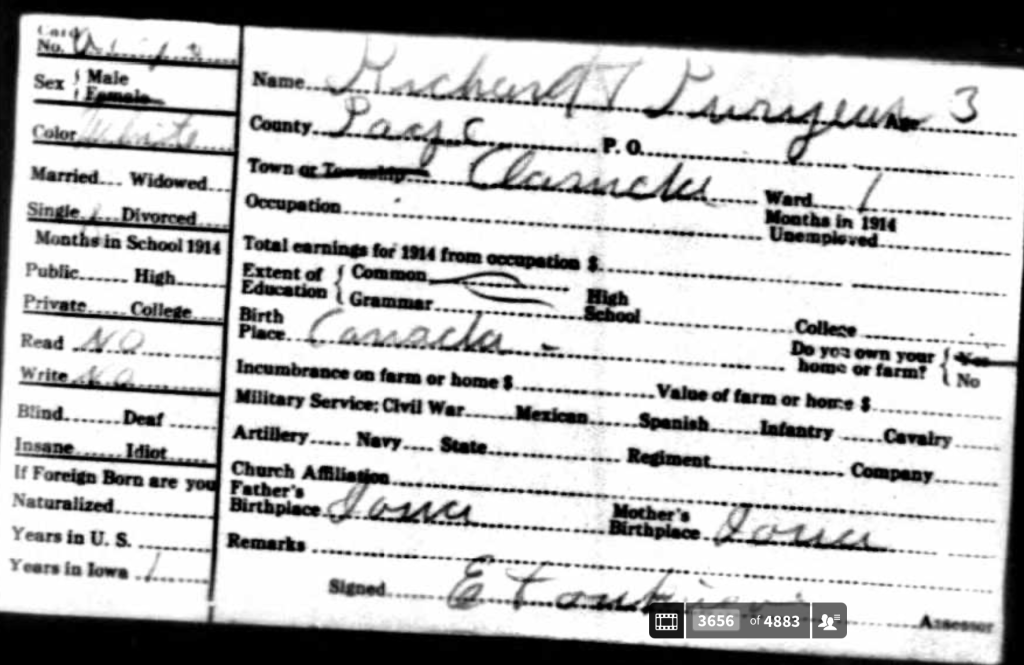 Card
No.
Sex Male
Female
Color White
Married.... Widowed....
Single 1 Divorced....
Months in School 1914
Public...... High......
Private...... College......
Read NO
Write NO
Blind...... Deaf......
Insane...... Idiot......
If Foreign Born are you
Naturalized......
Years in U. S. ......
Years in Iowa 1
Name Richard T Age 3
County Page P. O.
Town or Township Clarinda Ward 1
Occupation
Months in 1914
Unemployed
Total earnings for 1914 from occupation $
Extent of Education Common
Grammar
High School
College
Birth Place Canada -
Do you own your home or farm? Yes
No
Incumbrance on farm or home $ Value of farm or home $
Military Service; Civil War Mexican Spanish Infantry Cavalry
Artillery Navy State Regiment Company
Church Affiliation
Father's Birthplace Iowa Mother's Birthplace Iowa
Remarks
Signed E Assessor
3656 of 4883